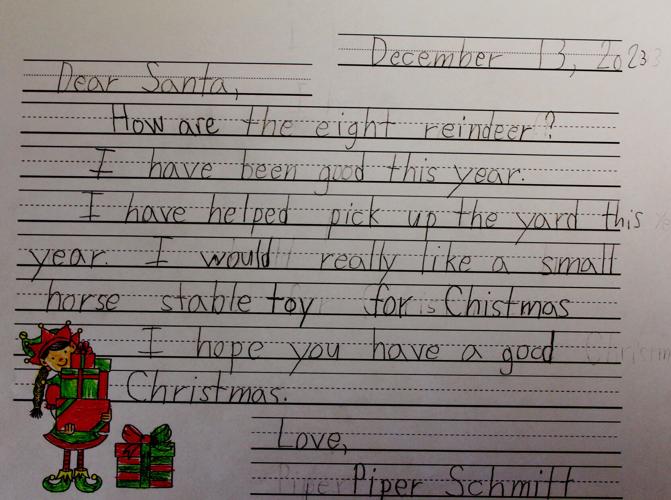 December 13, 2023
Dear Santa,
How are the eight reindeer?
I have been good this year.
I have helped pick up the yard this
year. I would really like a small
horse stable toy for Chistmas
I hope you have a good
Christmas.
Love,
Piper Schmitt